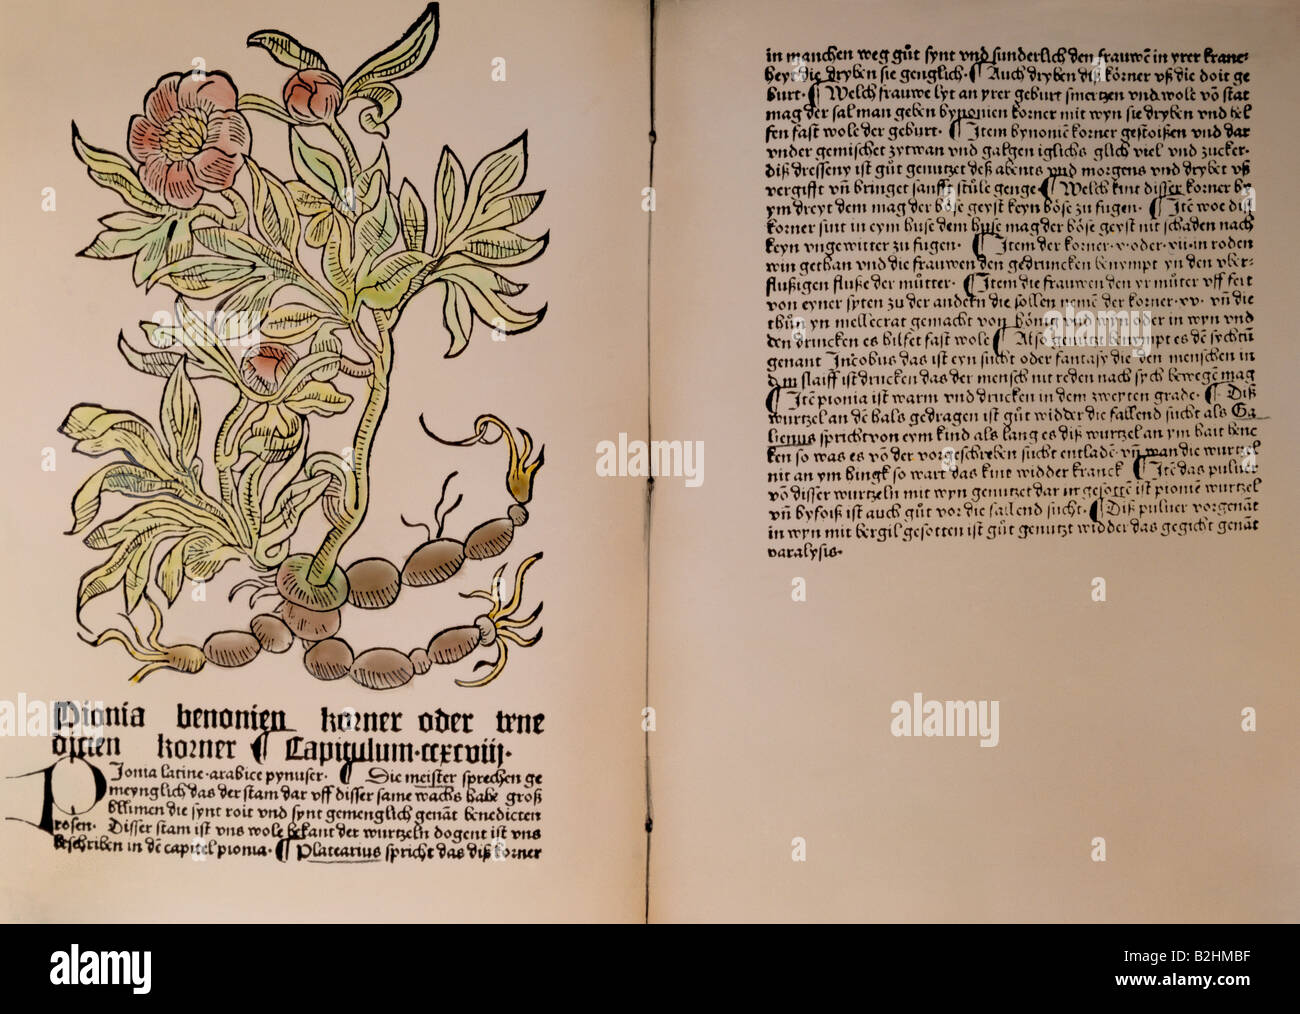 Pionia benonien korner oder tene
dicten korner ¶ Capitulum·ccxcviij·
PJonia latine·arabice pynuser· ¶ Die meister sprechen ge
meynglich das der stam dar vff disser same wachs habe groß
bllimen die synt roit vnd synt gemenglich genāt benedicten
rosen· Disser stam ist vns wole bekant der wurtzeln dogent ist vns
beschriben in dē capitel pionia· ¶ Platearius spricht das diß korner
in manchen weg gůt synt vnd sunderlich den frauwē in yrer kranc-
heyt die dryben sie genglich· ¶ Auch dryben diß körner vß die doit ge
burt· ¶ Welch frauwe lyt an yrer geburt smertzen vnd wole vō stat
mag der sal man geben bynonien korner mit wyn sie dryben vnd hel
fen fast wole der geburt· ¶ Item bynoniē korner gestoißen vnd dar
vnder gemischet zytwan vnd galgen iglichs glich viel vnd zucker·
diß dresseny ist gůt genutzet deß abents vnd morgens vnd drybet vß
vergifft vn̄ bringet sanfft stůle genge ¶ Welch kint disser korner by
ym dreyt dem mag der böse geyst keyn böse zu fugen· ¶ Itē woe diß
korner sint in eym huse dem huse mag der böse geyst nit schaden nach
keyn vngewitter zu fugen· ¶ Item der korner·v·oder·vii·in roden
win gethan vnd die frauwen den gedruncken benympt yn den vber-
flußigen fluße der můtter· ¶ Item die frauwen den yr můter vff feit
von eyner syten zu der andern die sollen nemē der korner·xv· vn̄ die
thůn yn mellecrat gemacht von hönig vnd wyn oder in wyn vnd
den drincken es hilfet fast wole ¶ Also genutzt benympt es dē sychtū
genant Incobus das ist eyn sucht oder fantasy die den menschen in
dem slaiff ist drucken das der mensch nit reden nach sych bewegē mag
¶ Itē pionia ist warm vnd drucken in dem zweyten grade· ¶ Diß
wurtzel an dē hals gedragen ist gůt widder die fallend sucht als Ga
lienus spricht von eym kind als lang es diß wurtzel an ym hait henc
ken so was es vō der vorgeschreben sucht entladē· vn̄ wan die wurtzel
nit an ym hingk so wart das kint widder kranck ¶ Itē das puluer
vō disser wurtzeln mit wyn genutzet dar in gesottē ist pioniē wurtzel
vn̄ byfoiß ist auch gůt vor die fallend sucht· ¶ Diß puluer vorgenāt
in wyn mit bergil gesotten ist gůt genutzt widder das gegicht genāt
paralysis·
alamy
alamy
alamy
alamy
a
a
a
a
a
a
a
a
a
a
a
a
alamy
Image ID: B2HMBF
www.alamy.com